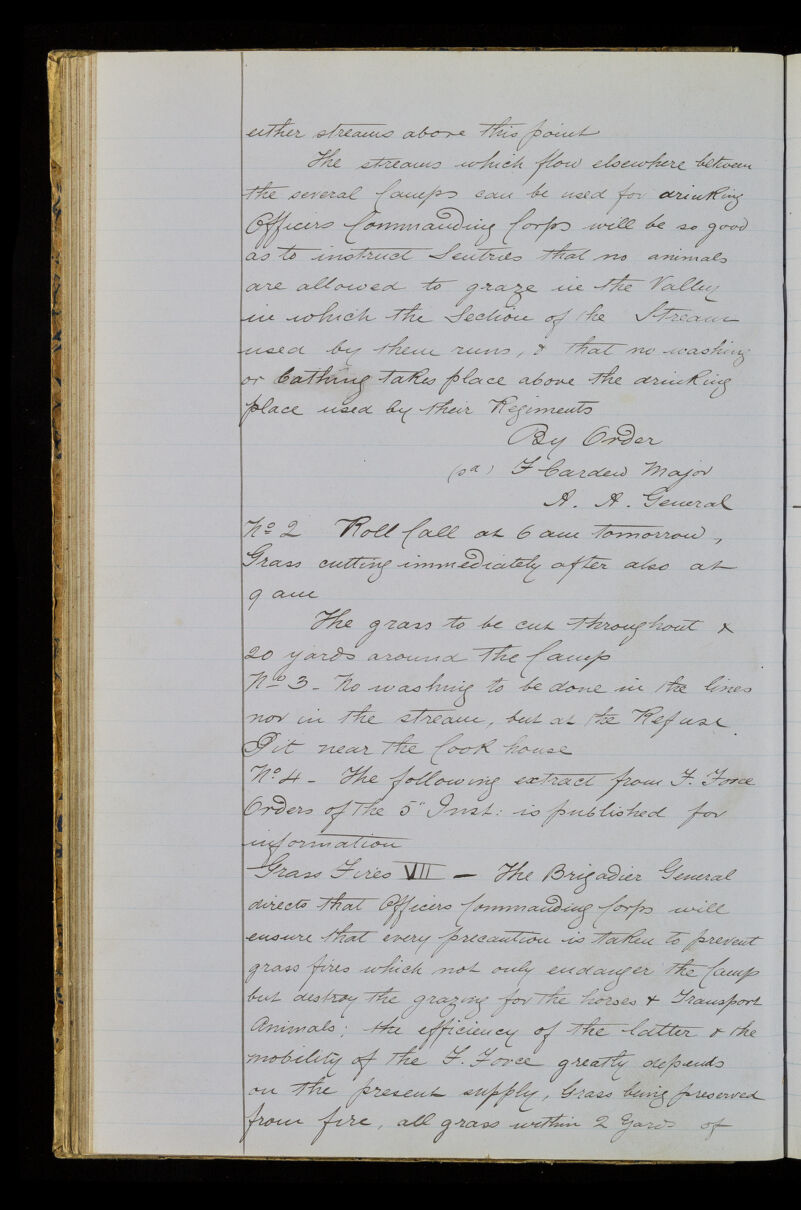 either streams above this point
The streams which flow elsewhere between
the several Camps can be used for drinking
Officers Commanding Corps will be so good
as to instruct Sentries that no animals
are allowed to graze in the Valley
in which the Section of the Stream
used by them runs, & that no washing
or bathing takes place above the drinking
place used by their Regiments
By Order
(sd) F Cardew Major
A. A. General
No 2 Roll Call at 6 am tomorrow,
Grass cutting immediately after also at
9 am
The grass to be cut throughout &
20 yards around the Camp
No 3 - No washing to be done in the lines
nor in the stream, but at the Refuse
Pit near the Cook house
No 4 - The following extract from F. Force
Orders of the 5" Inst: is published for
information
Grass Fires VII - The Brigadier General
directs that Officers Commanding Corps will
ensure that every precaution is taken to prevent
grass fires which not only endanger the Camp
but destroy the grazing for the horses & Transport
Animals; the efficiency of the latter & the
mobility of the F. Force greatly depends
on the present supply, Grass being preserved
from fire, all grass within 2 Yards of